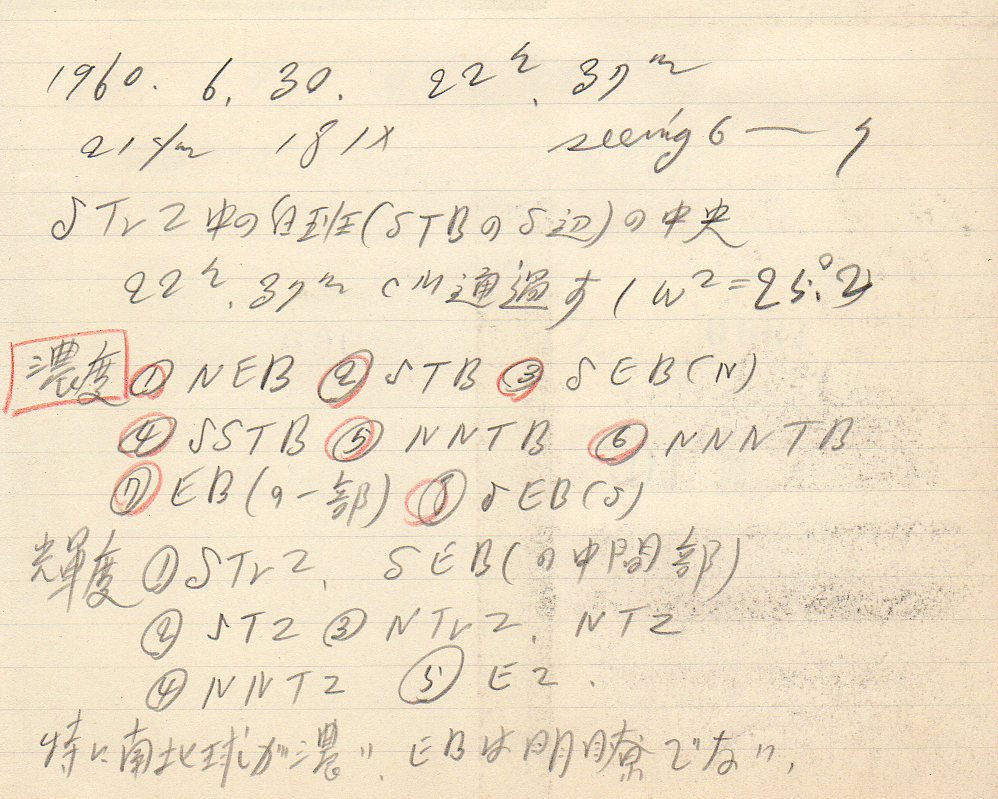 1960. 6. 30. 22h. 37m
21c/m 181X seeing 6 —
STrZ中の白斑(STBのS辺)の中央
22h. 37m CM通過す (W2=25.°2)
濃度 ① NEB ② STB ③ SEB(N)
④ SSTB ⑤ NNTB ⑥ NNNTB
⑦ EB(の一部) ⑧ SEB(S)
輝度 ① STrZ, SEB(の中間部)
② STZ ③ NTrZ, NTZ
④ NNTZ ⑤ EZ.
特に南北球が濃い, EBは明瞭でない,